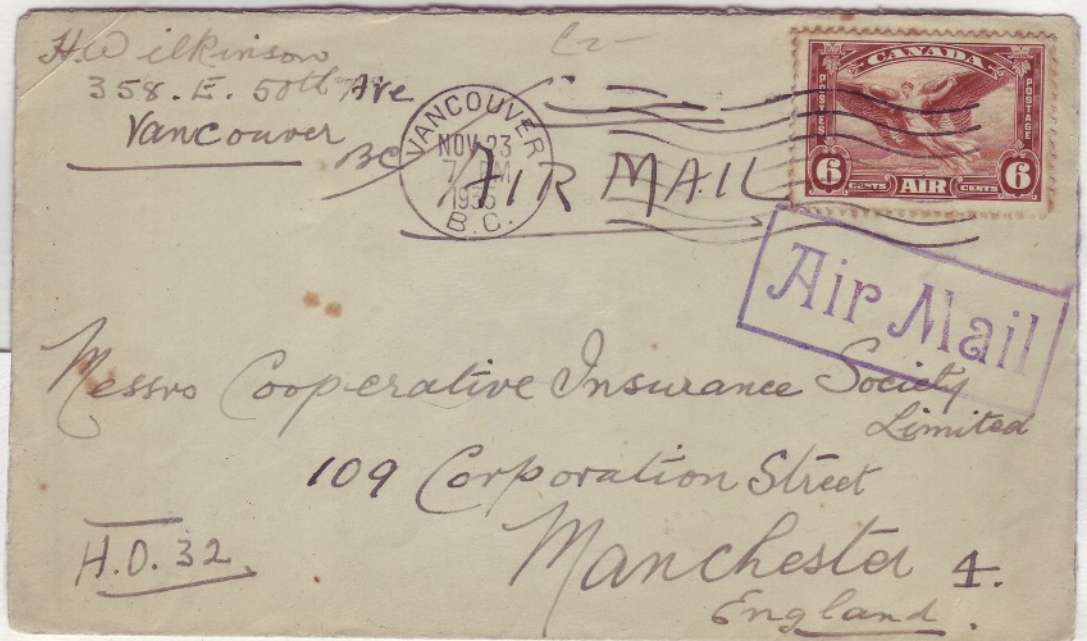 H. Wilkinson
358. E. 50th Ave
Vancouver
BC
VANCOUVER
NOV 23
7 PM
B.C.
AIR MAIL
CANADA
POSTES
POSTAGE
6 CENTS AIR CENTS 6
Air Mail
Messrs Cooperative Insurance Society
Limited
109 Corporation Street
Manchester 4.
England.
H.O. 32.